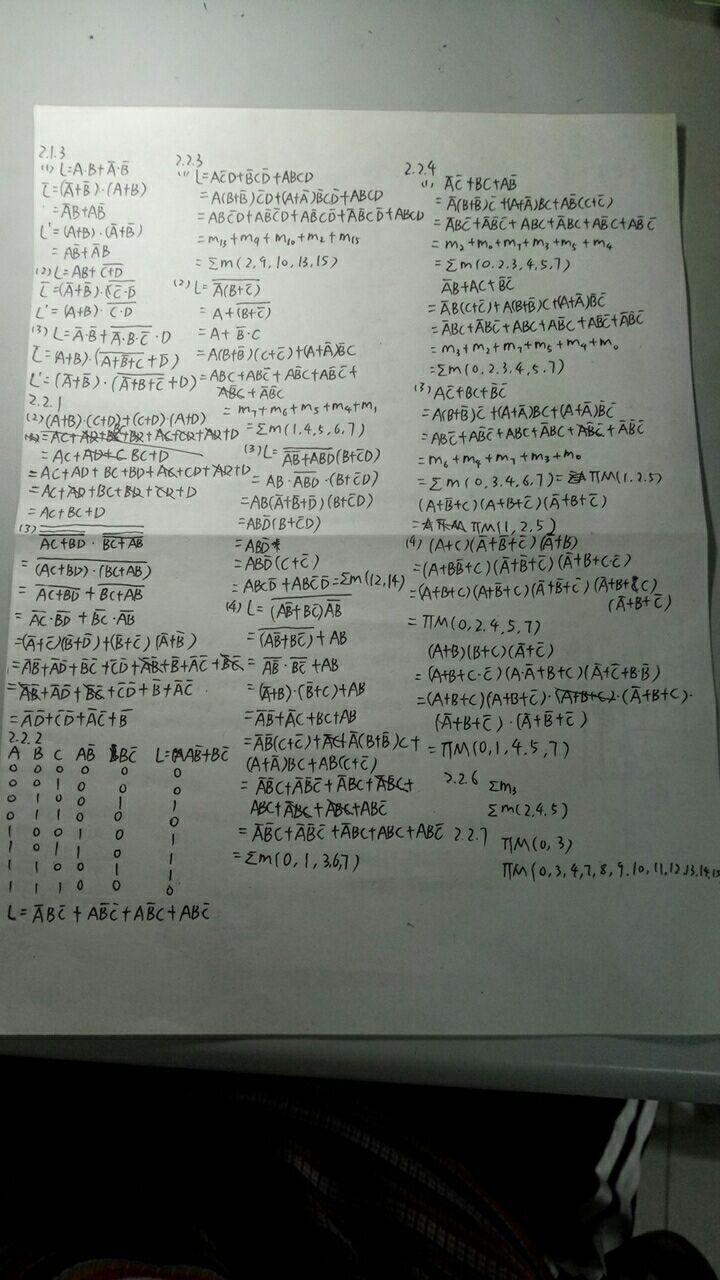 2.1.3
(1) L=A·B+A̅·B̅
L̅=(A̅+B̅)·(A+B)
=A̅B+AB̅
L'=(A+B)·(A̅+B̅)
=AB̅+A̅B
(2) L=AB+\overline{C+D}
L̅=(A̅+B̅)·\overline{C̅·D̅}
L'=(A+B)·\overline{C·D}
(3) L=A̅·B+\overline{A·B·C̅}·D
L̅=(A+B̅)·(\overline{A̅+B̅+C}+D̅)
L'=(A̅+B)·(\overline{A+B+C̅}+D)
2.2.1
(2) (A+B)·(C+D)+(C+D)·(A+D)
=AC+AD+BC+BD+AC+CD+AD+D
=AC+AD+BC+BD+CD+D
=AC+BC+D
(3)
=\overline{(AC+BD)·(BC+AB)}
=\overline{AC+BD}+\overline{BC+AB}
=\overline{AC}·\overline{BD}+\overline{BC}·\overline{AB}
=(A̅+C̅)(B̅+D̅)+(B̅+C̅)(A̅+B̅)
=A̅D̅+C̅D̅+A̅C̅+B̅
2.2.2
A B C AB̅ BC̅ L=AB̅+BC̅
0 0 0 0 0 0
0 0 1 0 0 0
0 1 0 0 1 1
0 1 1 0 0 0
1 0 0 1 0 1
1 0 1 1 0 1
1 1 0 0 1 1
1 1 1 0 0 0
L=A̅BC̅+AB̅C̅+AB̅C+ABC̅
2.2.3
(1) L=AC̅D+B̅CD̅+ABCD
=A(B+B̅)C̅D+(A+A̅)B̅CD̅+ABCD
=ABC̅D+AB̅C̅D+AB̅CD̅+A̅B̅CD̅+ABCD
=m₁₃+m₉+m₁₀+m₂+m₁₅
=Σm(2,9,10,13,15)
(2) L=\overline{A̅(B+C̅)}
=A+\overline{(B+C̅)}
=A+B̅·C
=A(B+B̅)(C+C̅)+(A+A̅)B̅C
=ABC+ABC̅+AB̅C+AB̅C̅+
AB̅C+A̅B̅C
=m₇+m₆+m₅+m₄+m₁
=Σm(1,4,5,6,7)
(3) L=\overline{\overline{AB}+ABD}(B+C̅D)
=AB·\overline{ABD}·(B+C̅D)
=AB(A̅+B̅+D̅)(B+C̅D)
=ABD̅(B+C̅D)
=ABD̅
=ABD̅(C+C̅)
=ABCD̅+ABC̅D̅=Σm(12,14)
(4) L=\overline{(AB̅+B̅C)\overline{AB}}
=\overline{(AB̅+BC̅)}+AB
=\overline{AB̅}·\overline{BC̅}+AB
=(A̅+B)·(B̅+C)+AB
=A̅B̅+A̅C+BC+AB
=A̅B̅(C+C̅)+A̅(B+B̅)C+
(A+A̅)BC+AB(C+C̅)
=A̅B̅C+A̅B̅C̅+A̅BC+A̅B̅C+
ABC+A̅BC+ABC+ABC̅
=A̅B̅C+A̅B̅C̅+A̅BC+ABC+ABC̅
=Σm(0,1,3,6,7)
2.2.4
(1) A̅C̅+BC+AB̅
=A̅(B+B̅)C̅+(A+A̅)BC+AB̅(C+C̅)
=A̅BC̅+A̅B̅C̅+ABC+A̅BC+AB̅C+AB̅C̅
=m₂+m₀+m₇+m₃+m₅+m₄
=Σm(0.2.3,4,5,7)
A̅B+AC+B̅C̅
=A̅B(C+C̅)+A(B+B̅)C+(A+A̅)B̅C̅
=A̅BC+A̅BC̅+ABC+AB̅C+AB̅C̅+A̅B̅C̅
=m₃+m₂+m₇+m₅+m₄+m₀
=Σm(0.2.3,4,5.7)
(3) AC̅+BC+B̅C̅
=A(B+B̅)C̅+(A+A̅)BC+(A+A̅)B̅C̅
=ABC̅+AB̅C̅+ABC+A̅BC+AB̅C̅+A̅B̅C̅
=m₆+m₄+m₇+m₃+m₀
=Σm(0,3,4,6,7)=ΠM(1,2.5)
(A+B̅+C)(A+B+C̅)(A̅+B+C̅)
=ΠM(1,2,5)
(4) (A+C)(A̅+B̅+C̅)(A̅+B)
=(A+BB̅+C)(A̅+B̅+C̅)(A̅+B+C·C̅)
=(A+B+C)(A+B̅+C)(A̅+B̅+C̅)(A̅+B+C)
(A̅+B+C̅)
=ΠM(0,2.4,5,7)
(A+B)(B+C)(A̅+C̅)
=(A+B+C·C̅)(A·A̅+B+C)(A̅+C̅+B·B̅)
=(A+B+C)(A+B+C̅)·(A+B+C)·(A̅+B+C)·
(A̅+B+C̅)·(A̅+B̅+C̅)
=ΠM(0,1,4.5,7)
2.2.6 Σm₃
Σm(2,4,5)
2.2.7 ΠM(0,3)
ΠM(0,3,4,7,8,9,10,11,12,13,14,15